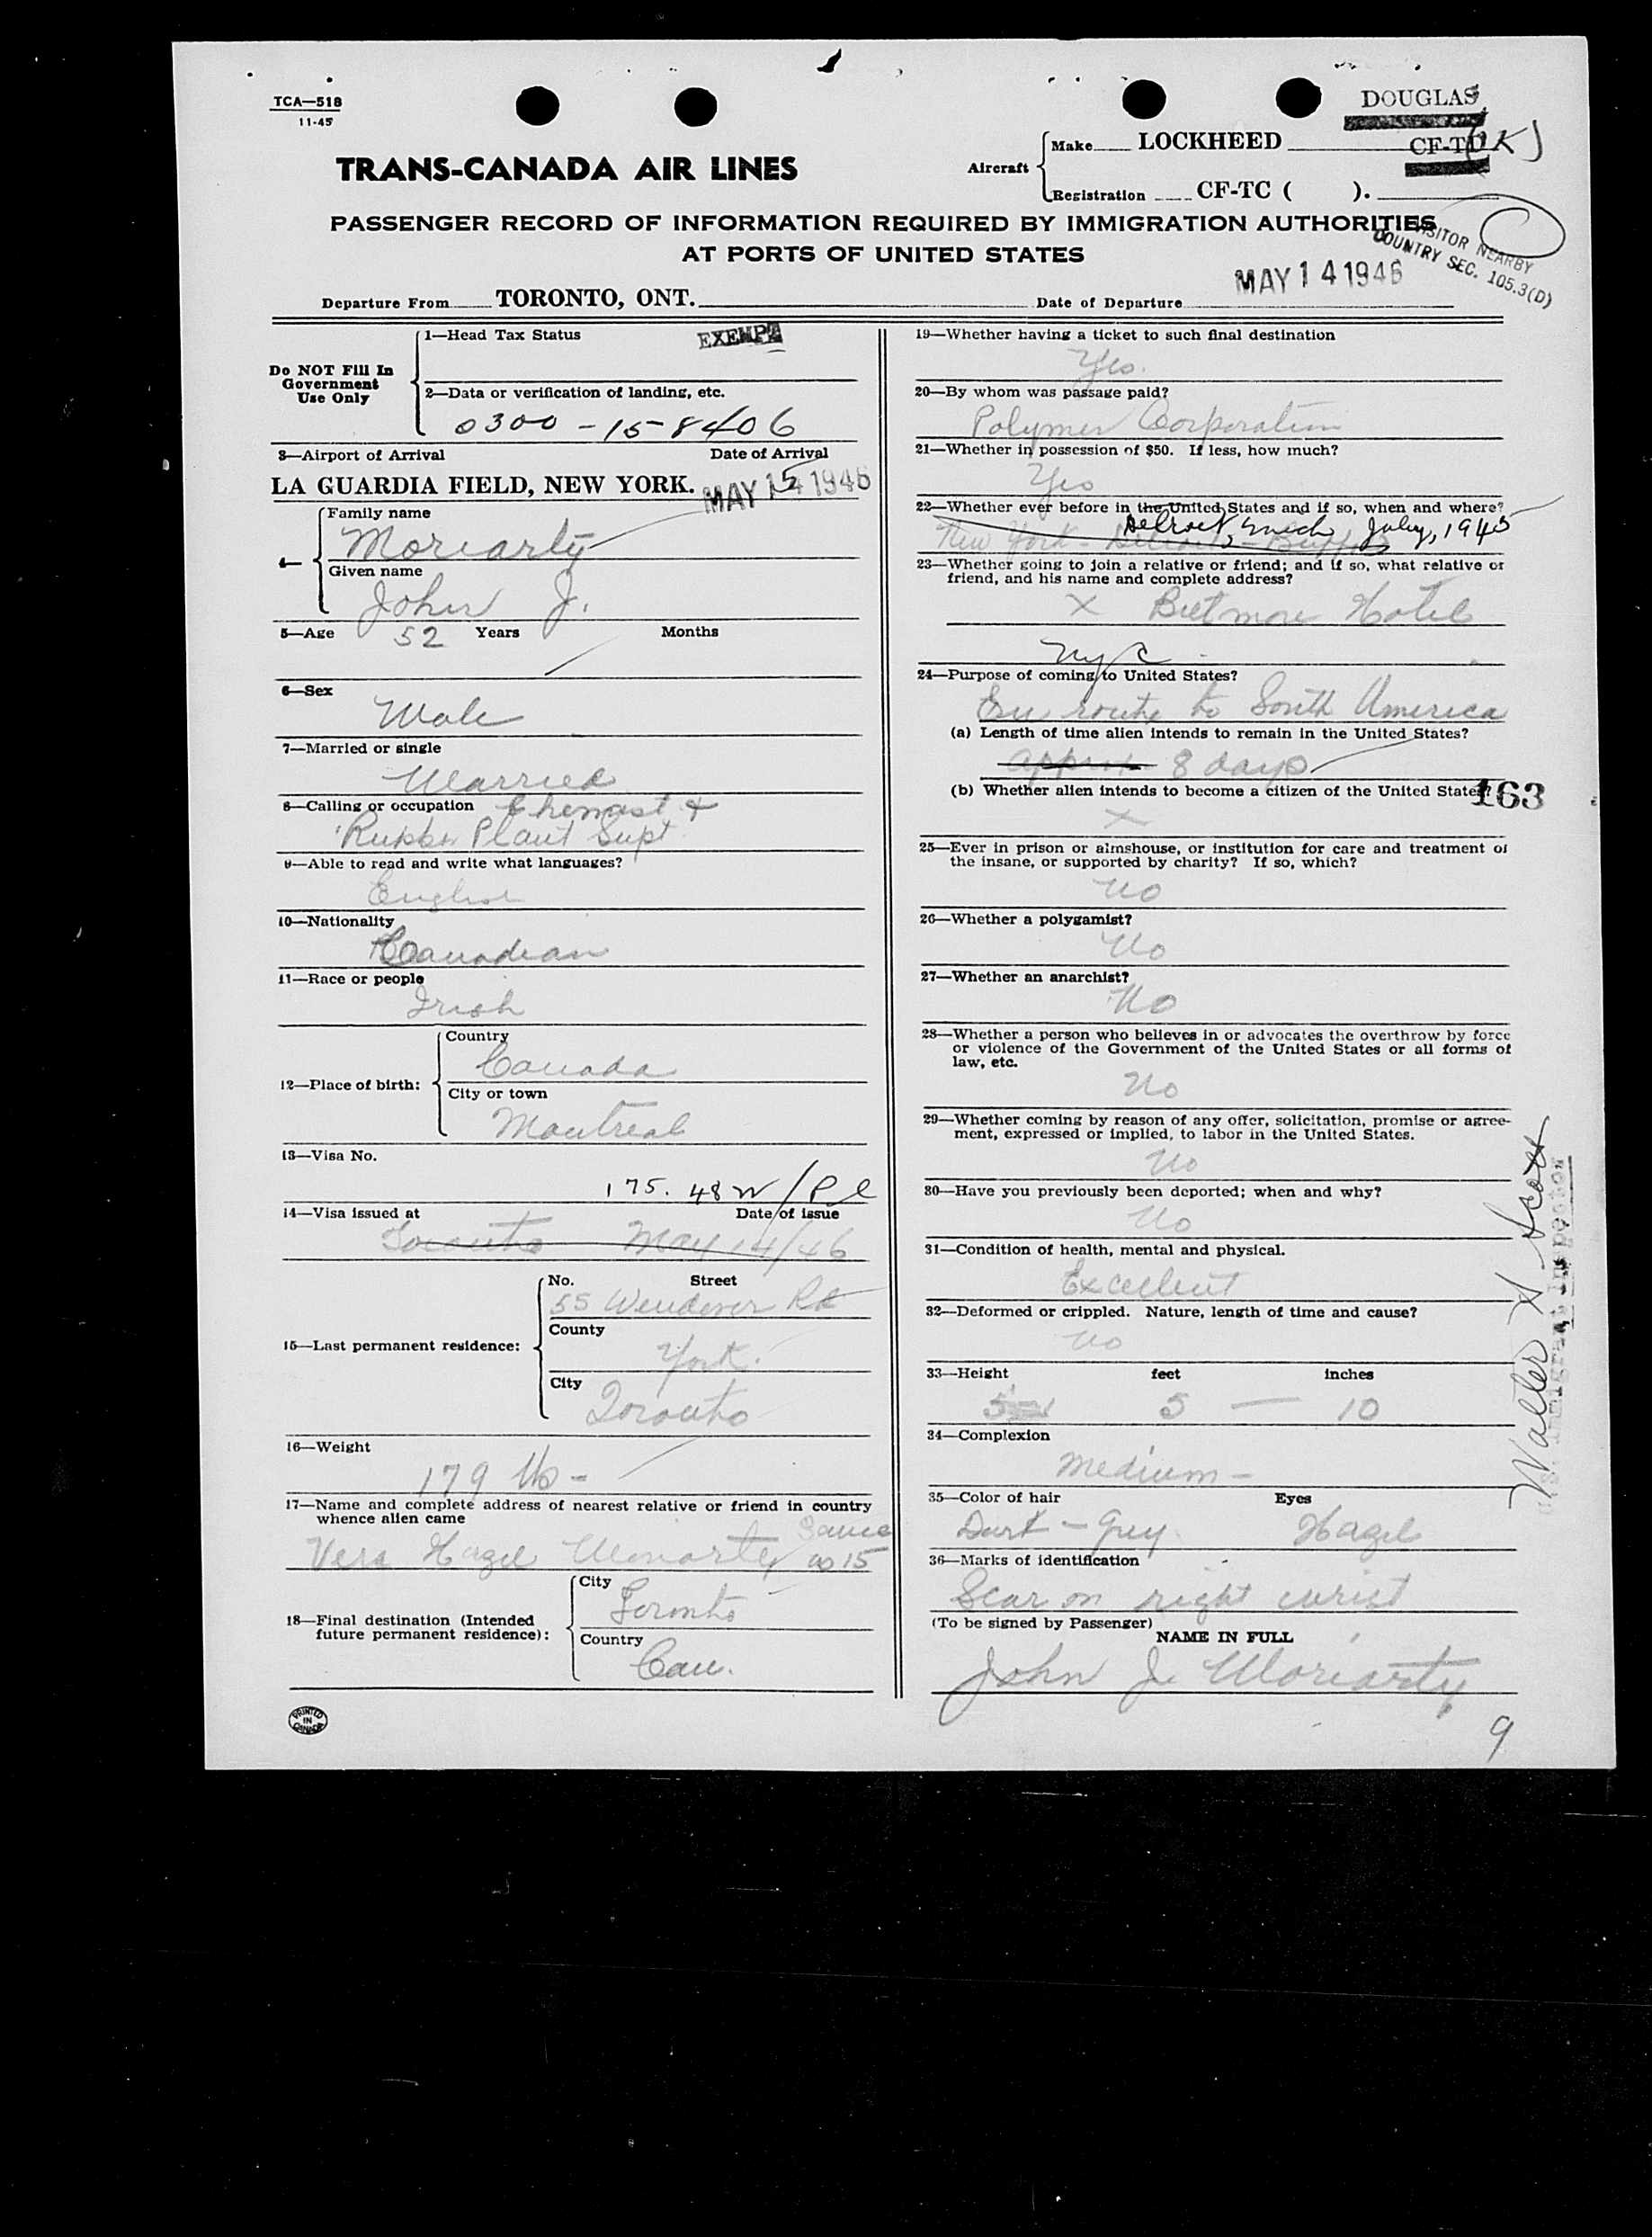 TCA—518
11-45
DOUGLAS
TRANS-CANADA AIR LINES
Aircraft
Make LOCKHEED
CF-T (K)
Registration CF-TC ( ).
PASSENGER RECORD OF INFORMATION REQUIRED BY IMMIGRATION AUTHORITIES
AT PORTS OF UNITED STATES
VISITOR NEARBY
COUNTRY SEC. 105.3(D)
Departure From TORONTO, ONT.
Date of Departure MAY 14 1946
Do NOT Fill In
Government
Use Only
1—Head Tax Status EXEMPT
2—Data or verification of landing, etc.
0300 - 15-8406
3—Airport of Arrival Date of Arrival
LA GUARDIA FIELD, NEW YORK. MAY 15 1946
4—
Family name
Moriarty
Given name
John J.
5—Age 52 Years Months
6—Sex
Male
7—Married or single
Married
8—Calling or occupation Chemist &
Rubber Plant Supt
9—Able to read and write what languages?
English
10—Nationality
Canadian
11—Race or people
Irish
12—Place of birth:
Country
Canada
City or town
Montreal
13—Visa No.
175. 48 W/
14—Visa issued at Date of issue
Toronto May 14/46
15—Last permanent residence:
No. Street
55 Wendover Rd
County
York.
City
Toronto
16—Weight
179 lbs -
17—Name and complete address of nearest relative or friend in country
whence alien came
Same
Vera Hazel Moriarty as 15
18—Final destination (Intended
future permanent residence):
City
Toronto
Country
Can.
PRINTED
IN
CANADA
19—Whether having a ticket to such final destination
Yes.
20—By whom was passage paid?
Polymer Corporation
21—Whether in possession of $50. If less, how much?
Yes
22—Whether ever before in the United States and if so, when and where?
Detroit, Mich July, 1945
New York - Detroit - Buffalo
23—Whether going to join a relative or friend; and if so, what relative or
friend, and his name and complete address?
X Biltmore Hotel
NYC
24—Purpose of coming to United States?
En route to South America
(a) Length of time alien intends to remain in the United States?
approx. 8 days
(b) Whether alien intends to become a citizen of the United States?
163
X
25—Ever in prison or almshouse, or institution for care and treatment of
the insane, or supported by charity? If so, which?
No
26—Whether a polygamist?
No
27—Whether an anarchist?
No
28—Whether a person who believes in or advocates the overthrow by force
or violence of the Government of the United States or all forms of
law, etc.
No
29—Whether coming by reason of any offer, solicitation, promise or agree-
ment, expressed or implied, to labor in the United States.
No
30—Have you previously been deported; when and why?
No
31—Condition of health, mental and physical.
Excellent
32—Deformed or crippled. Nature, length of time and cause?
No
33—Height feet inches
5 — 10
34—Complexion
Medium -
35—Color of hair Eyes
Dark - Grey Hazel
36—Marks of identification
Scar on right wrist
(To be signed by Passenger)
NAME IN FULL
John J. Moriarty
9
Walter H. Scott
Immigrant Inspector